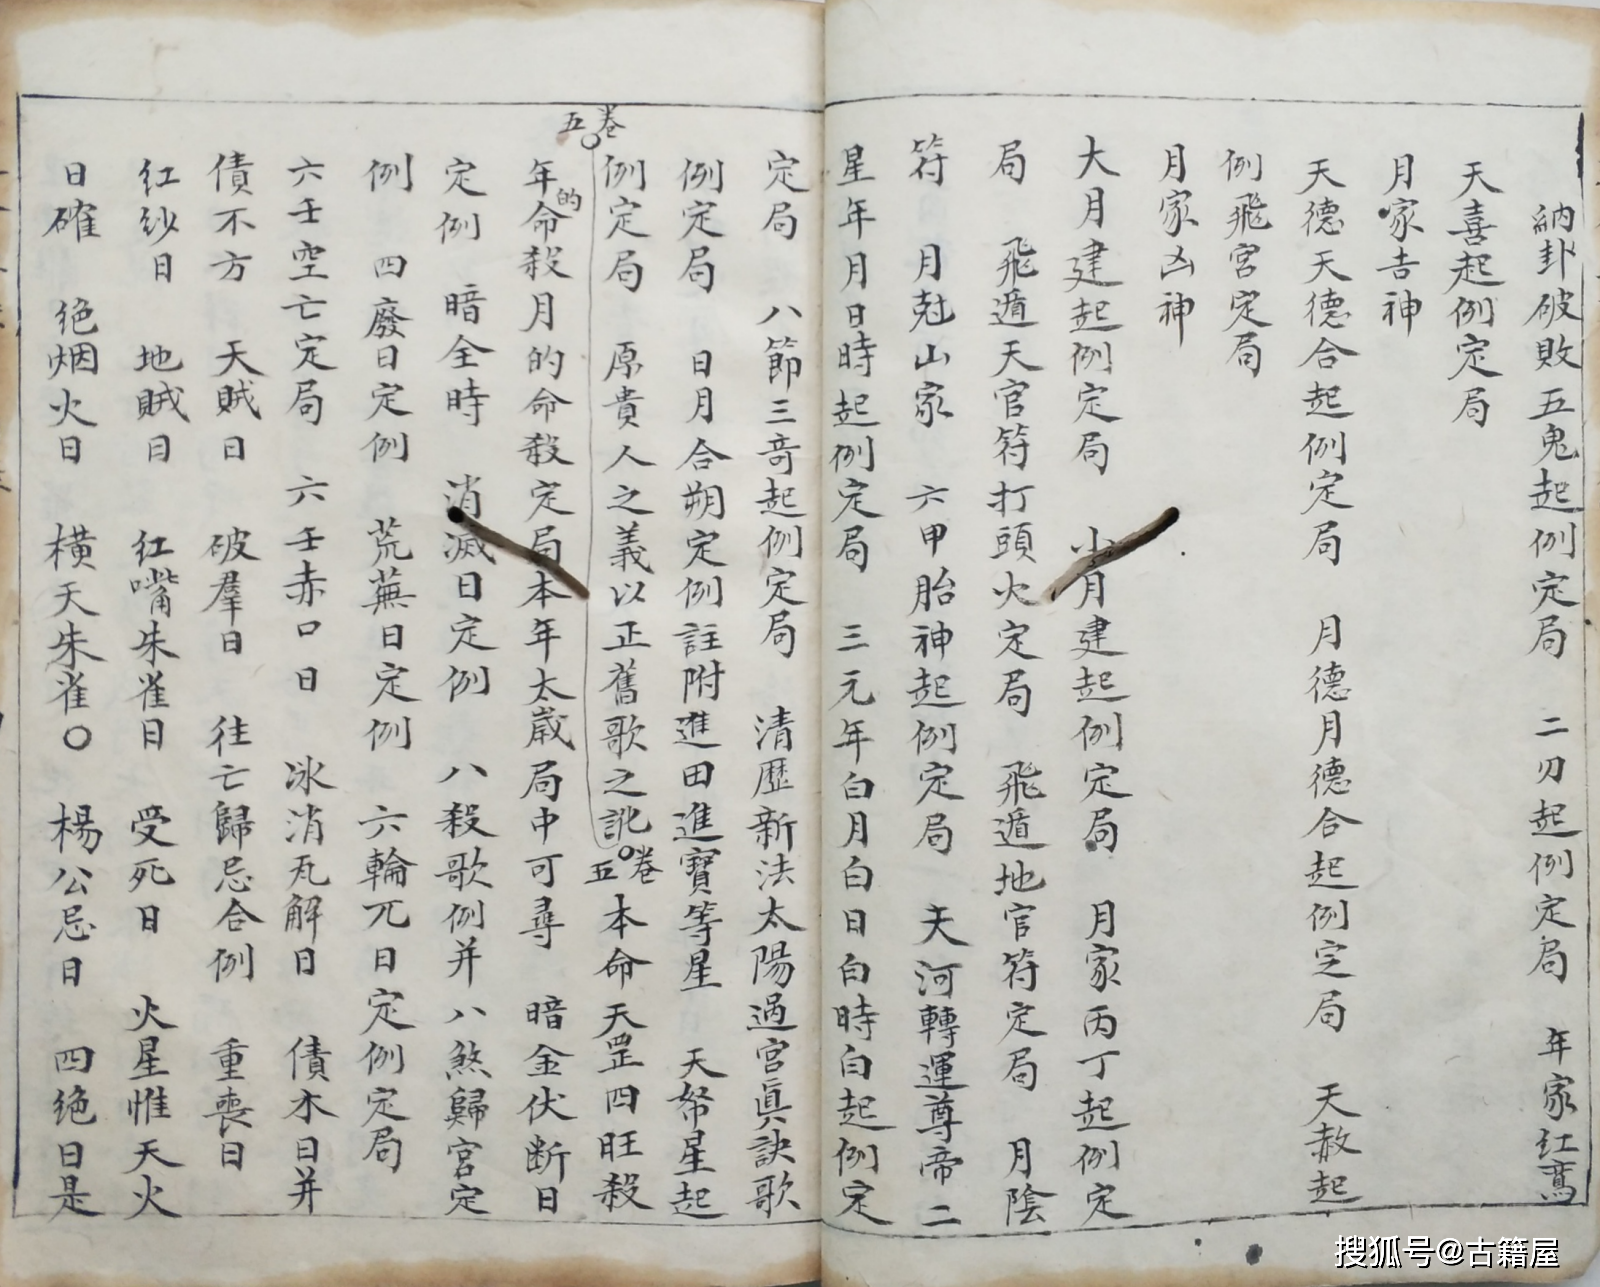 納卦破敗五鬼起例定局　二刃起例定局　年家紅鸞
天喜起例定局
月家吉神
天德天德合起例定局　月德月德合起例定局　天赦起
例飛宮定局
月家凶神
大月建起例定局　小月建起例定局　月家丙丁起例定
局　飛遁天官符打頭火定局　飛遁地官符定局　月陰
符　月尅山家　六甲胎神起例定局　天河轉運尊帝二
星年月日時起例定局　三元年白月白日白時白起例定
定局　八節三奇起例定局　清歷新法太陽過宮真訣歌
例定局　日月合朔定例註附進田進寶等星　天帑星起
例定局　原貴人之義以正舊歌之訛　本命天罡四旺殺
卷五
卷五
年的命殺月的命殺定局本年太歲局中可尋　暗金伏断日
定例　暗全時　消滅日定例　八殺歌例并八煞歸宮定
例　四廢日定例　荒蕪日定例　六輪兀日定例定局
六壬空亡定局　六壬赤口日　冰消瓦解日　債木日并
債不方　天賊日　破羣日　往亡歸忌合例　重喪日
紅紗日　地賊日　紅嘴朱雀日　受死日　火星惟天火
日確　绝烟火日　横天朱雀〇　楊公忌日　四绝日是
搜狐号@古籍屋